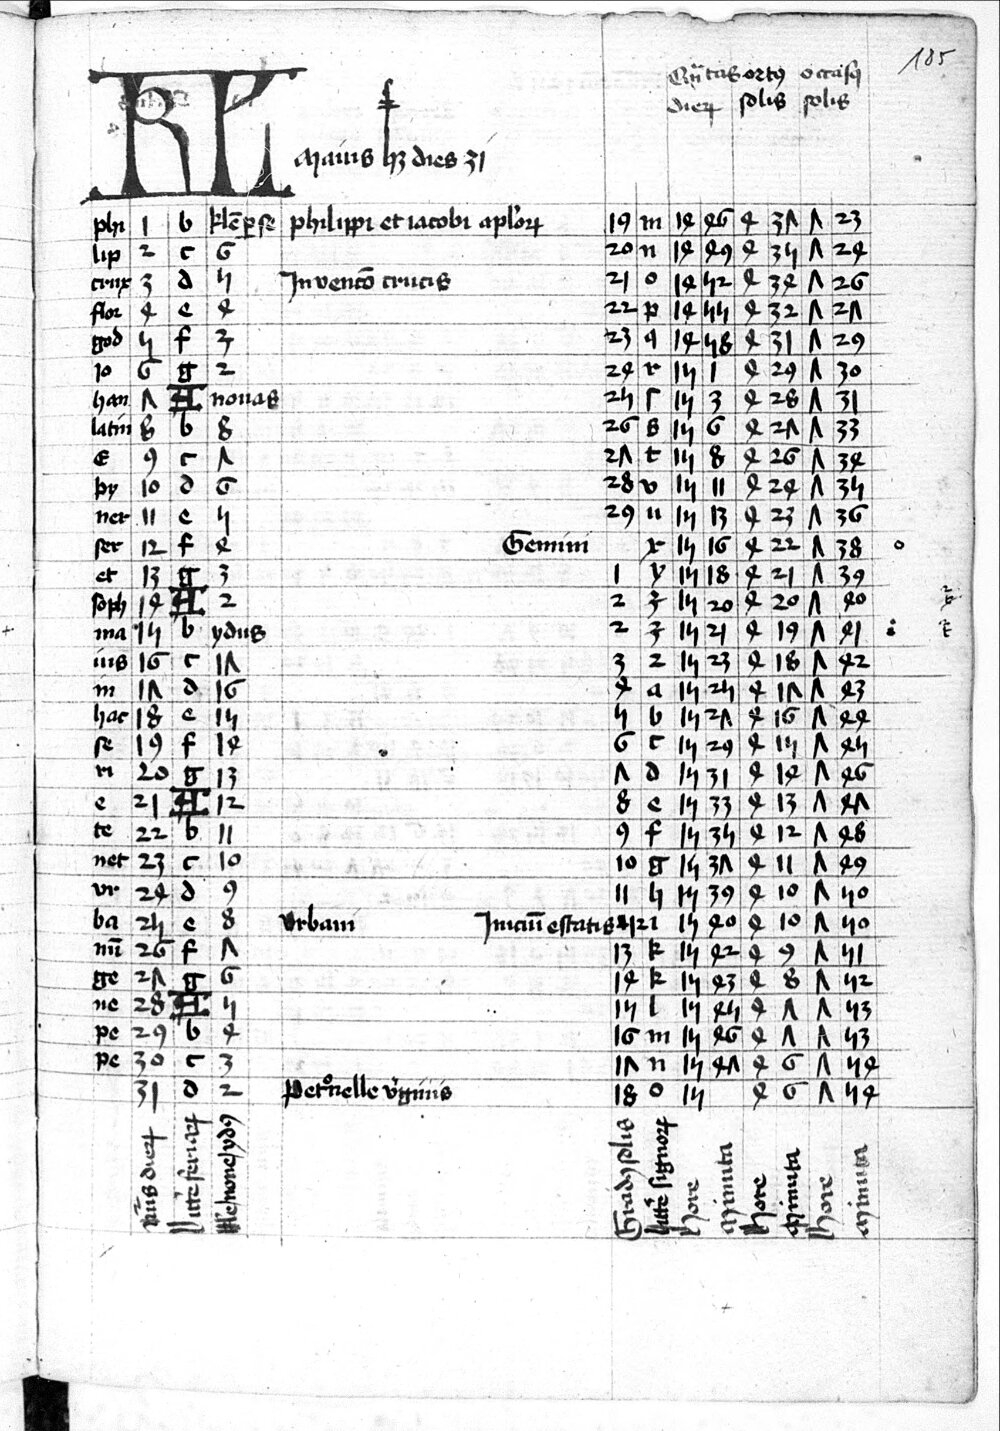 185
Qntitas ortus occasus
KL dierum solis solis
Maius hz dies 31
phi 1 b kle per se philippi et iacobi aplorum 19 m 14 46 4 37 7 23
lip 2 c 6 20 n 14 49 4 35 7 24
crux 3 d 5 Invencō crucis 21 o 14 52 4 34 7 26
flor 4 e 4 22 p 14 55 4 32 7 27
god 5 f 3 23 q 14 58 4 31 7 29
io 6 g 2 24 r 15 1 4 29 7 30
han 7 A nonas 25 ſ 15 3 4 28 7 31
latin 8 b 8 26 s 15 6 4 27 7 33
E 9 c 7 27 t 15 8 4 26 7 34
py 10 d 6 28 v 15 11 4 24 7 35
ner 11 e 5 29 u 15 13 4 23 7 36
ser 12 f 4 Gemini x 15 16 4 22 7 38
et 13 g 3 1 y 15 18 4 21 7 39
soph 14 A 2 2 z 15 20 4 20 7 40
ma 15 b ydus 2 z 15 21 4 19 7 41
ius 16 c 17 3 2 15 23 4 18 7 42
in 17 d 16 4 a 15 25 4 17 7 43
hac 18 e 15 5 b 15 27 4 16 7 44
se 19 f 14 6 c 15 29 4 15 7 45
ri 20 g 13 7 d 15 31 4 14 7 46
e 21 A 12 8 e 15 33 4 13 7 47
te 22 b 11 9 f 15 35 4 12 7 48
net 23 c 10 10 g 15 37 4 11 7 49
vr 24 d 9 11 h 15 39 4 10 7 50
ba 25 e 8 Urbani Iniciū estatis 12 i 15 40 4 10 7 50
nū 26 f 7 13 k 15 42 4 9 7 51
ge 27 g 6 14 k 15 43 4 8 7 52
ne 28 A 5 15 l 15 45 4 7 7 53
pe 29 b 4 16 m 15 46 4 7 7 53
pe 30 c 3 17 n 15 47 4 6 7 54
31 d 2 Petronelle virginis 18 o 15 4 6 7 54
nūs dierum
littere feriarum
kle none ydus
Gradus solis
littere signorum
hore
Minuta
hore
Minuta
hore
Minuta